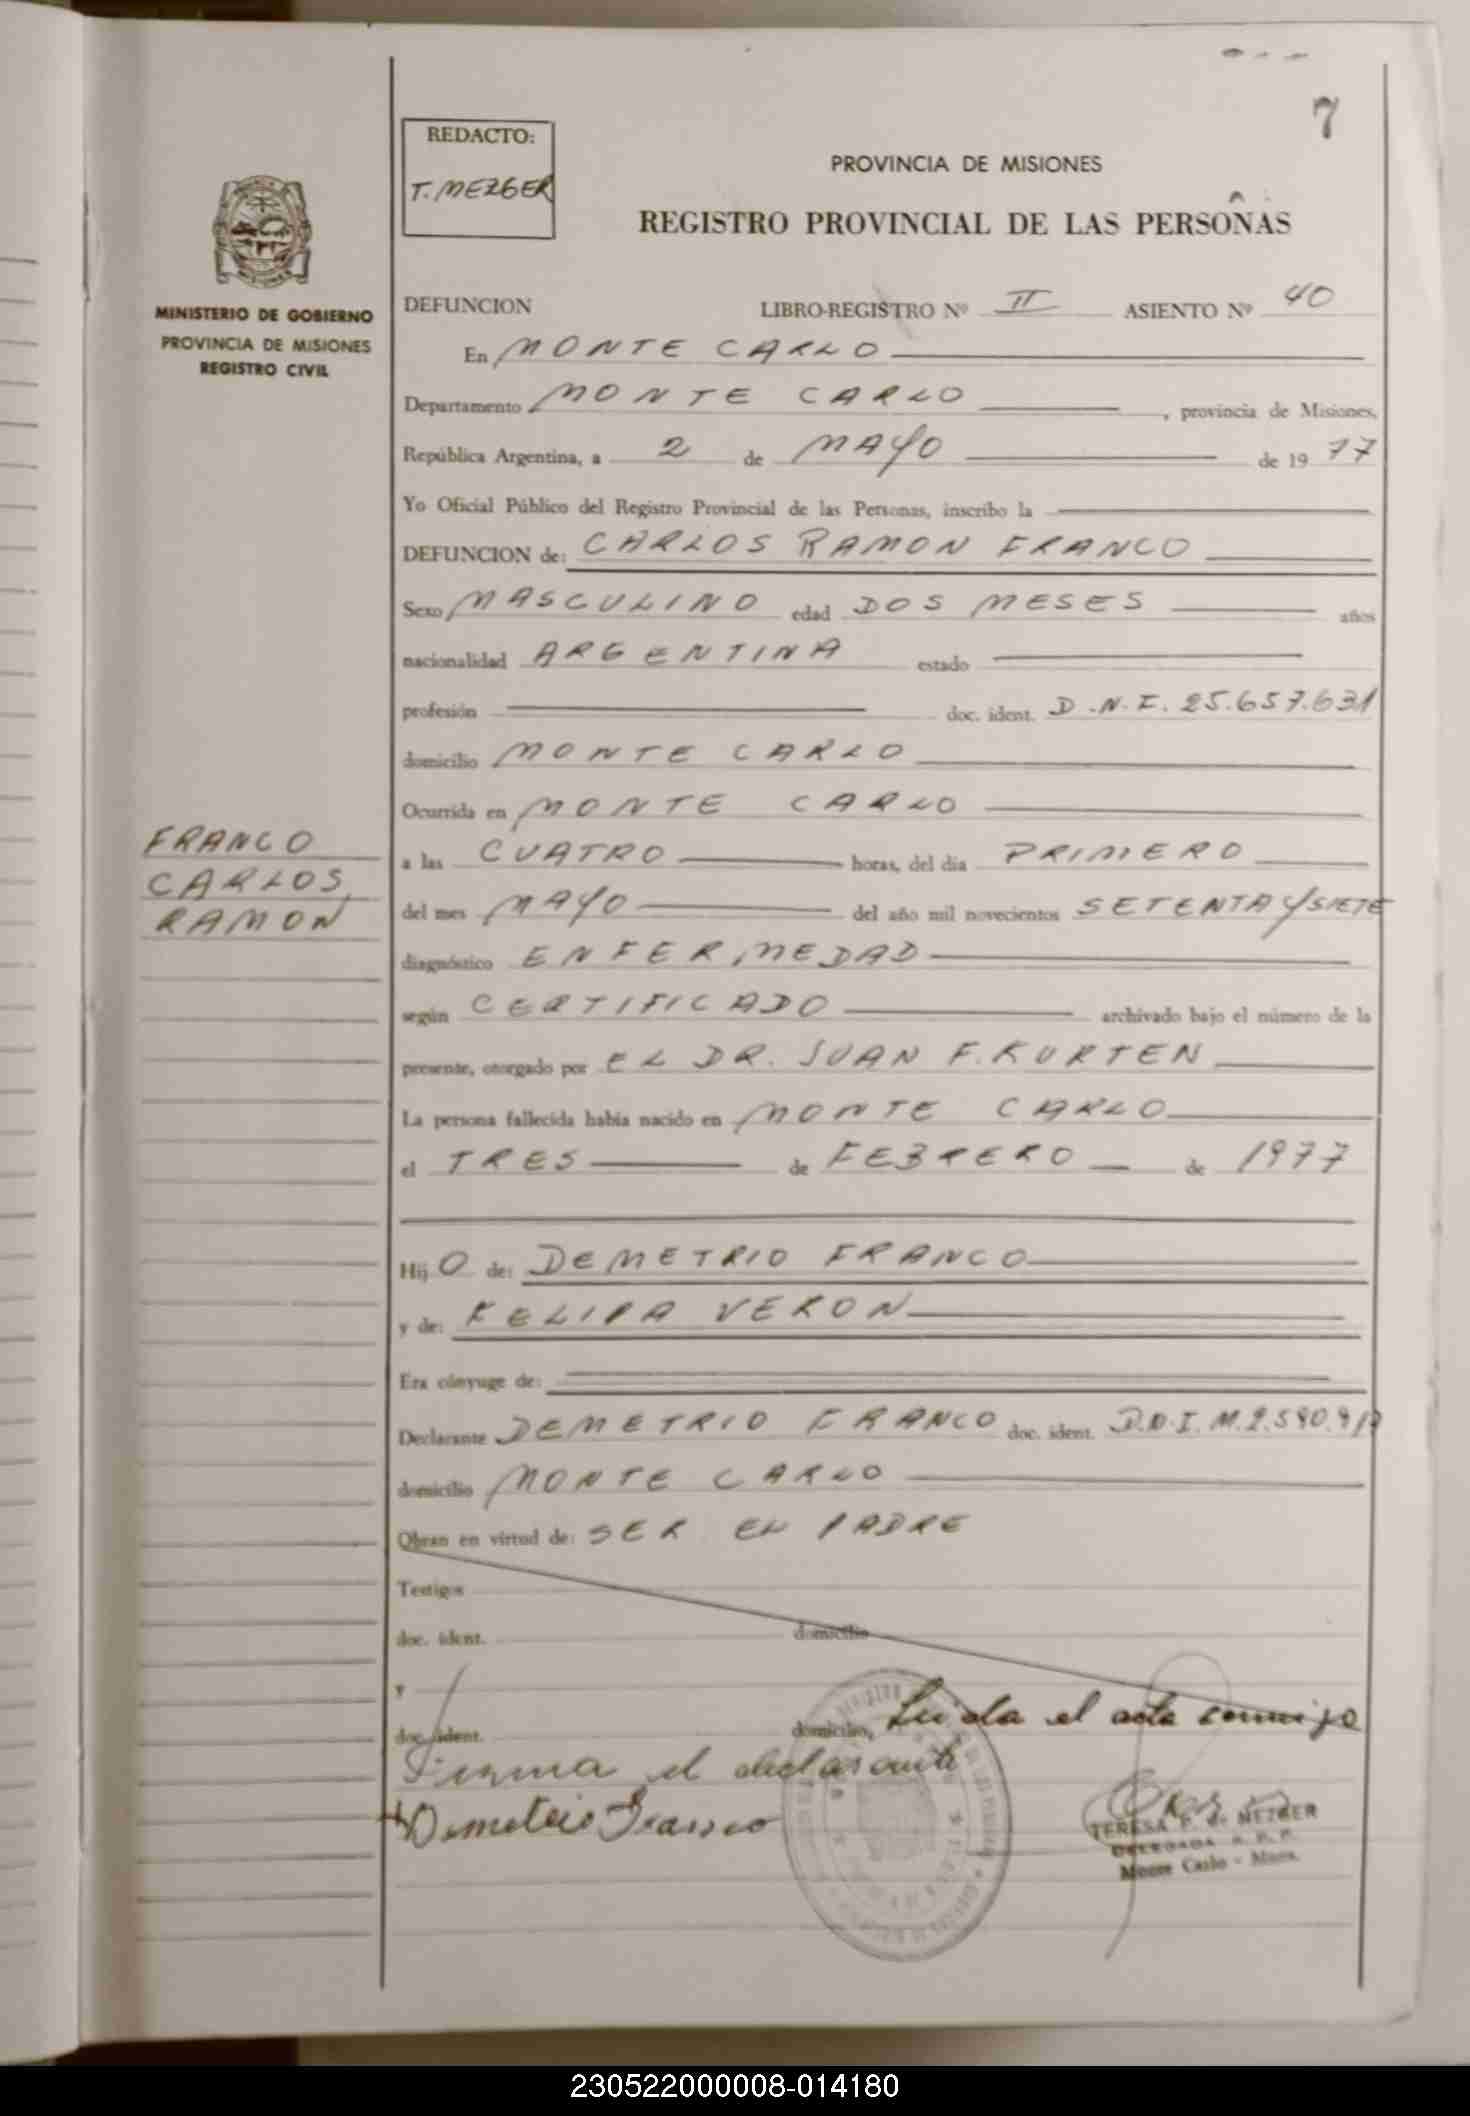 7
REDACTO:
T. MEZGER
PROVINCIA DE MISIONES
REGISTRO PROVINCIAL DE LAS PERSONAS
MINISTERIO DE GOBIERNO
PROVINCIA DE MISIONES
REGISTRO CIVIL
DEFUNCION LIBRO-REGISTRO Nº II ASIENTO Nº 40
En MONTE CARLO
Departamento MONTE CARLO, provincia de Misiones,
República Argentina, a 2 de MAYO de 19 77
Yo Oficial Público del Registro Provincial de las Personas, inscribo la
DEFUNCION de: CARLOS RAMON FRANCO
Sexo MASCULINO edad DOS MESES años
nacionalidad ARGENTINA estado
profesión doc. ident. D.N.I. 25.657.631
domicilio MONTE CARLO
Ocurrida en MONTE CARLO
FRANCO
CARLOS
RAMON
a las CUATRO horas, del día PRIMERO
del mes MAYO del año mil novecientos SETENTA Y SIETE
diagnóstico ENFERMEDAD
según CERTIFICADO archivado bajo el número de la
presente, otorgado por EL DR. JUAN F. KURTEN
La persona fallecida había nacido en MONTE CARLO
el TRES de FEBRERO de 1977
Hij O de: DEMETRIO FRANCO
y de: FELIPA VERON
Era cónyuge de:
Declarante DEMETRIO FRANCO doc. ident.
domicilio MONTE CARLO
Obran en virtud de: SER EL PADRE
Testigos
doc. ident. domicilio
y
doc. ident. domicilio, Leida el acta
Firma el declarante
Demetrio Franco
TERESA F. de MEZGER
DELEGADA R. P. P.
Monte Carlo - Mnes.
230522000008-014180